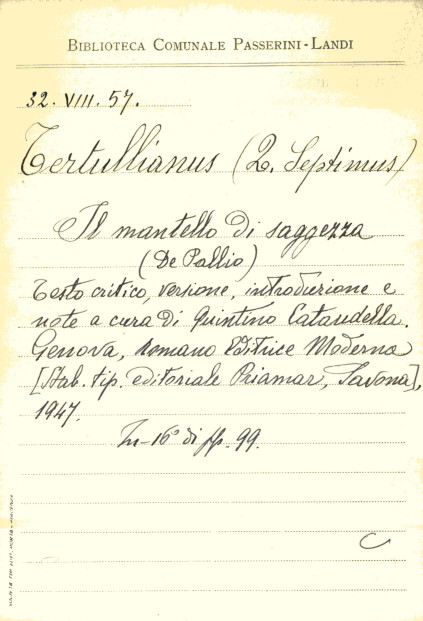 BIBLIOTECA COMUNALE PASSERINI-LANDI
32. VIII. 57.
Tertullianus (Q. Septimus)
Il mantello di saggezza
(De Pallio)
Testo critico, versione, introduzione e
note a cura di Quintino Cataudella.
Genova, Romano Editrice Moderna
[Stab. tip. editoriale Priamar, Savona],
1947.
In-16° di pp. 99.
C